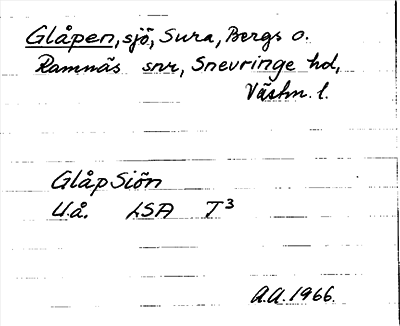 Glåpen, sjö, Sura, Bergs o.
Ramnäs snr, Snevringe hd,
Västm. l.
GlåpSiön
U.å. LSA T³
A.A. 1966.